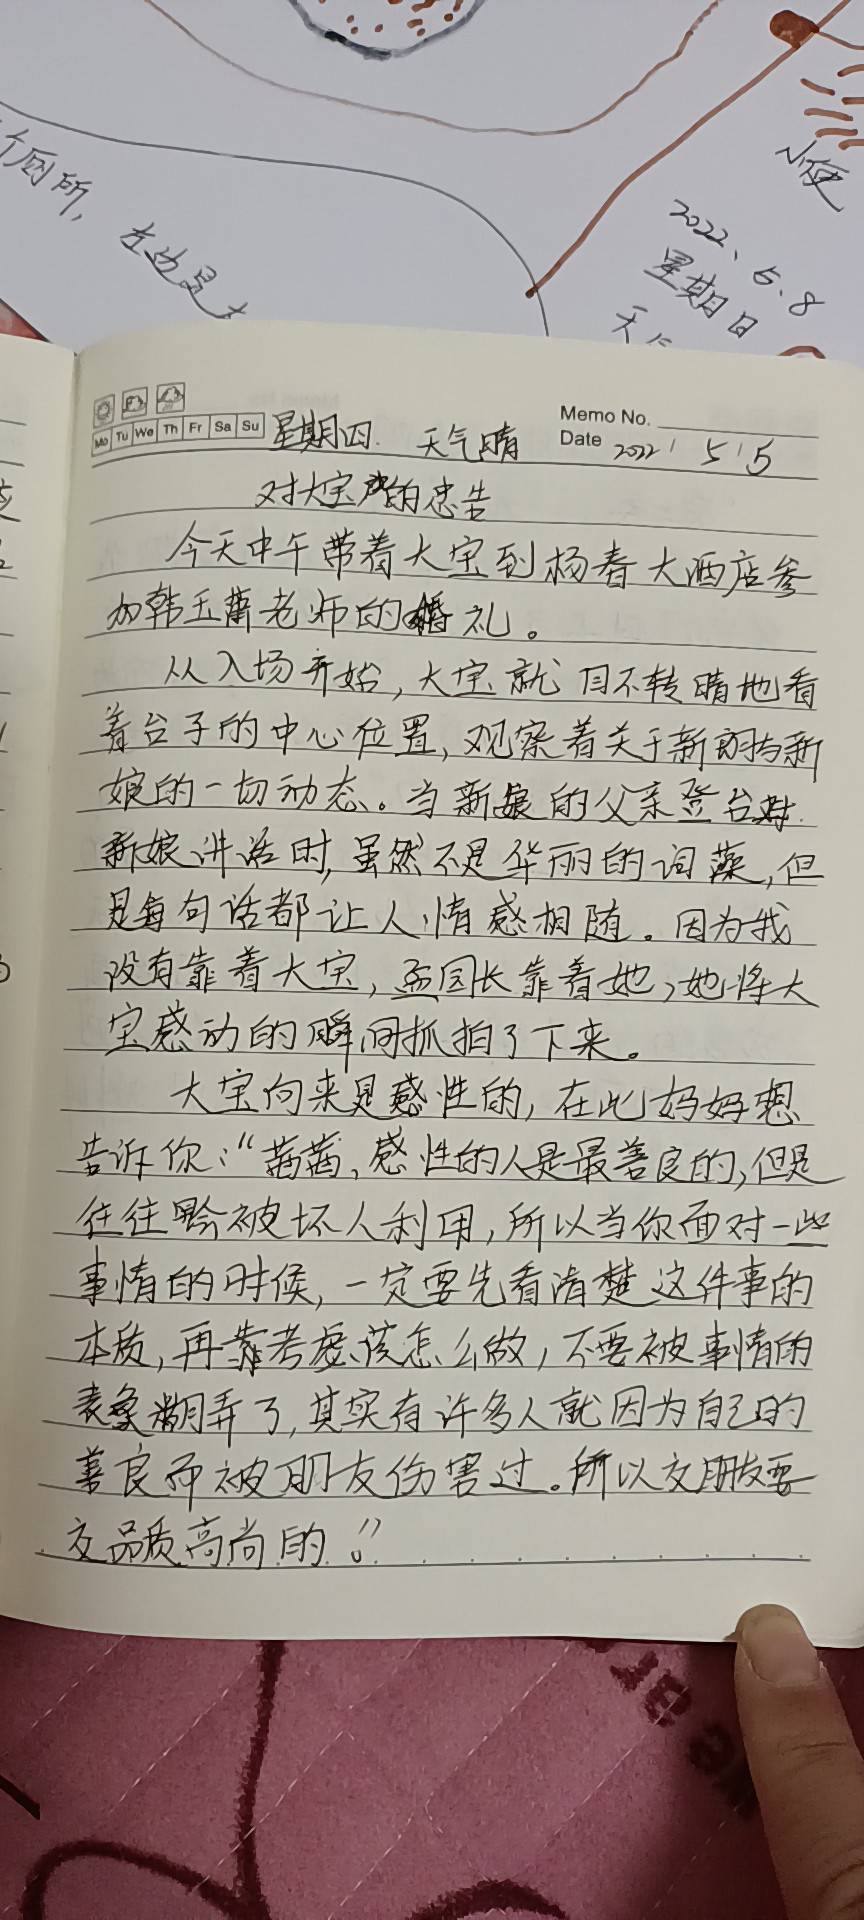 个厕所,左边是
小便
2022、5.8
星期日
Mo Tu We Th Fr Sa Su 星期四. 天气晴 Memo No.
Date 2022 / 5 / 5
对大宝的忠告
今天中午带着大宝到杨春大酒店参
加韩玉萧老师的婚礼。
从入场开始,大宝就目不转睛地看
着台子的中心位置,观察着关于新郎与新
娘的一切动态。当新娘的父亲登台对
新娘讲话时,虽然不是华丽的词藻,但
是每句话都让人情感相随。因为我
没有靠着大宝,孟园长靠着她,她将大
宝感动的瞬间抓拍了下来。
大宝向来是感性的,在此妈妈想
告诉你:“茜茜,感性的人是最善良的,但是
往往会被坏人利用,所以当你面对一些
事情的时候,一定要先看清楚这件事的
本质,再考虑该怎么做,不要被事情的
表象糊弄了,其实有许多人就因为自己的
善良而被朋友伤害过。所以交朋友要
交品质高尚的!”